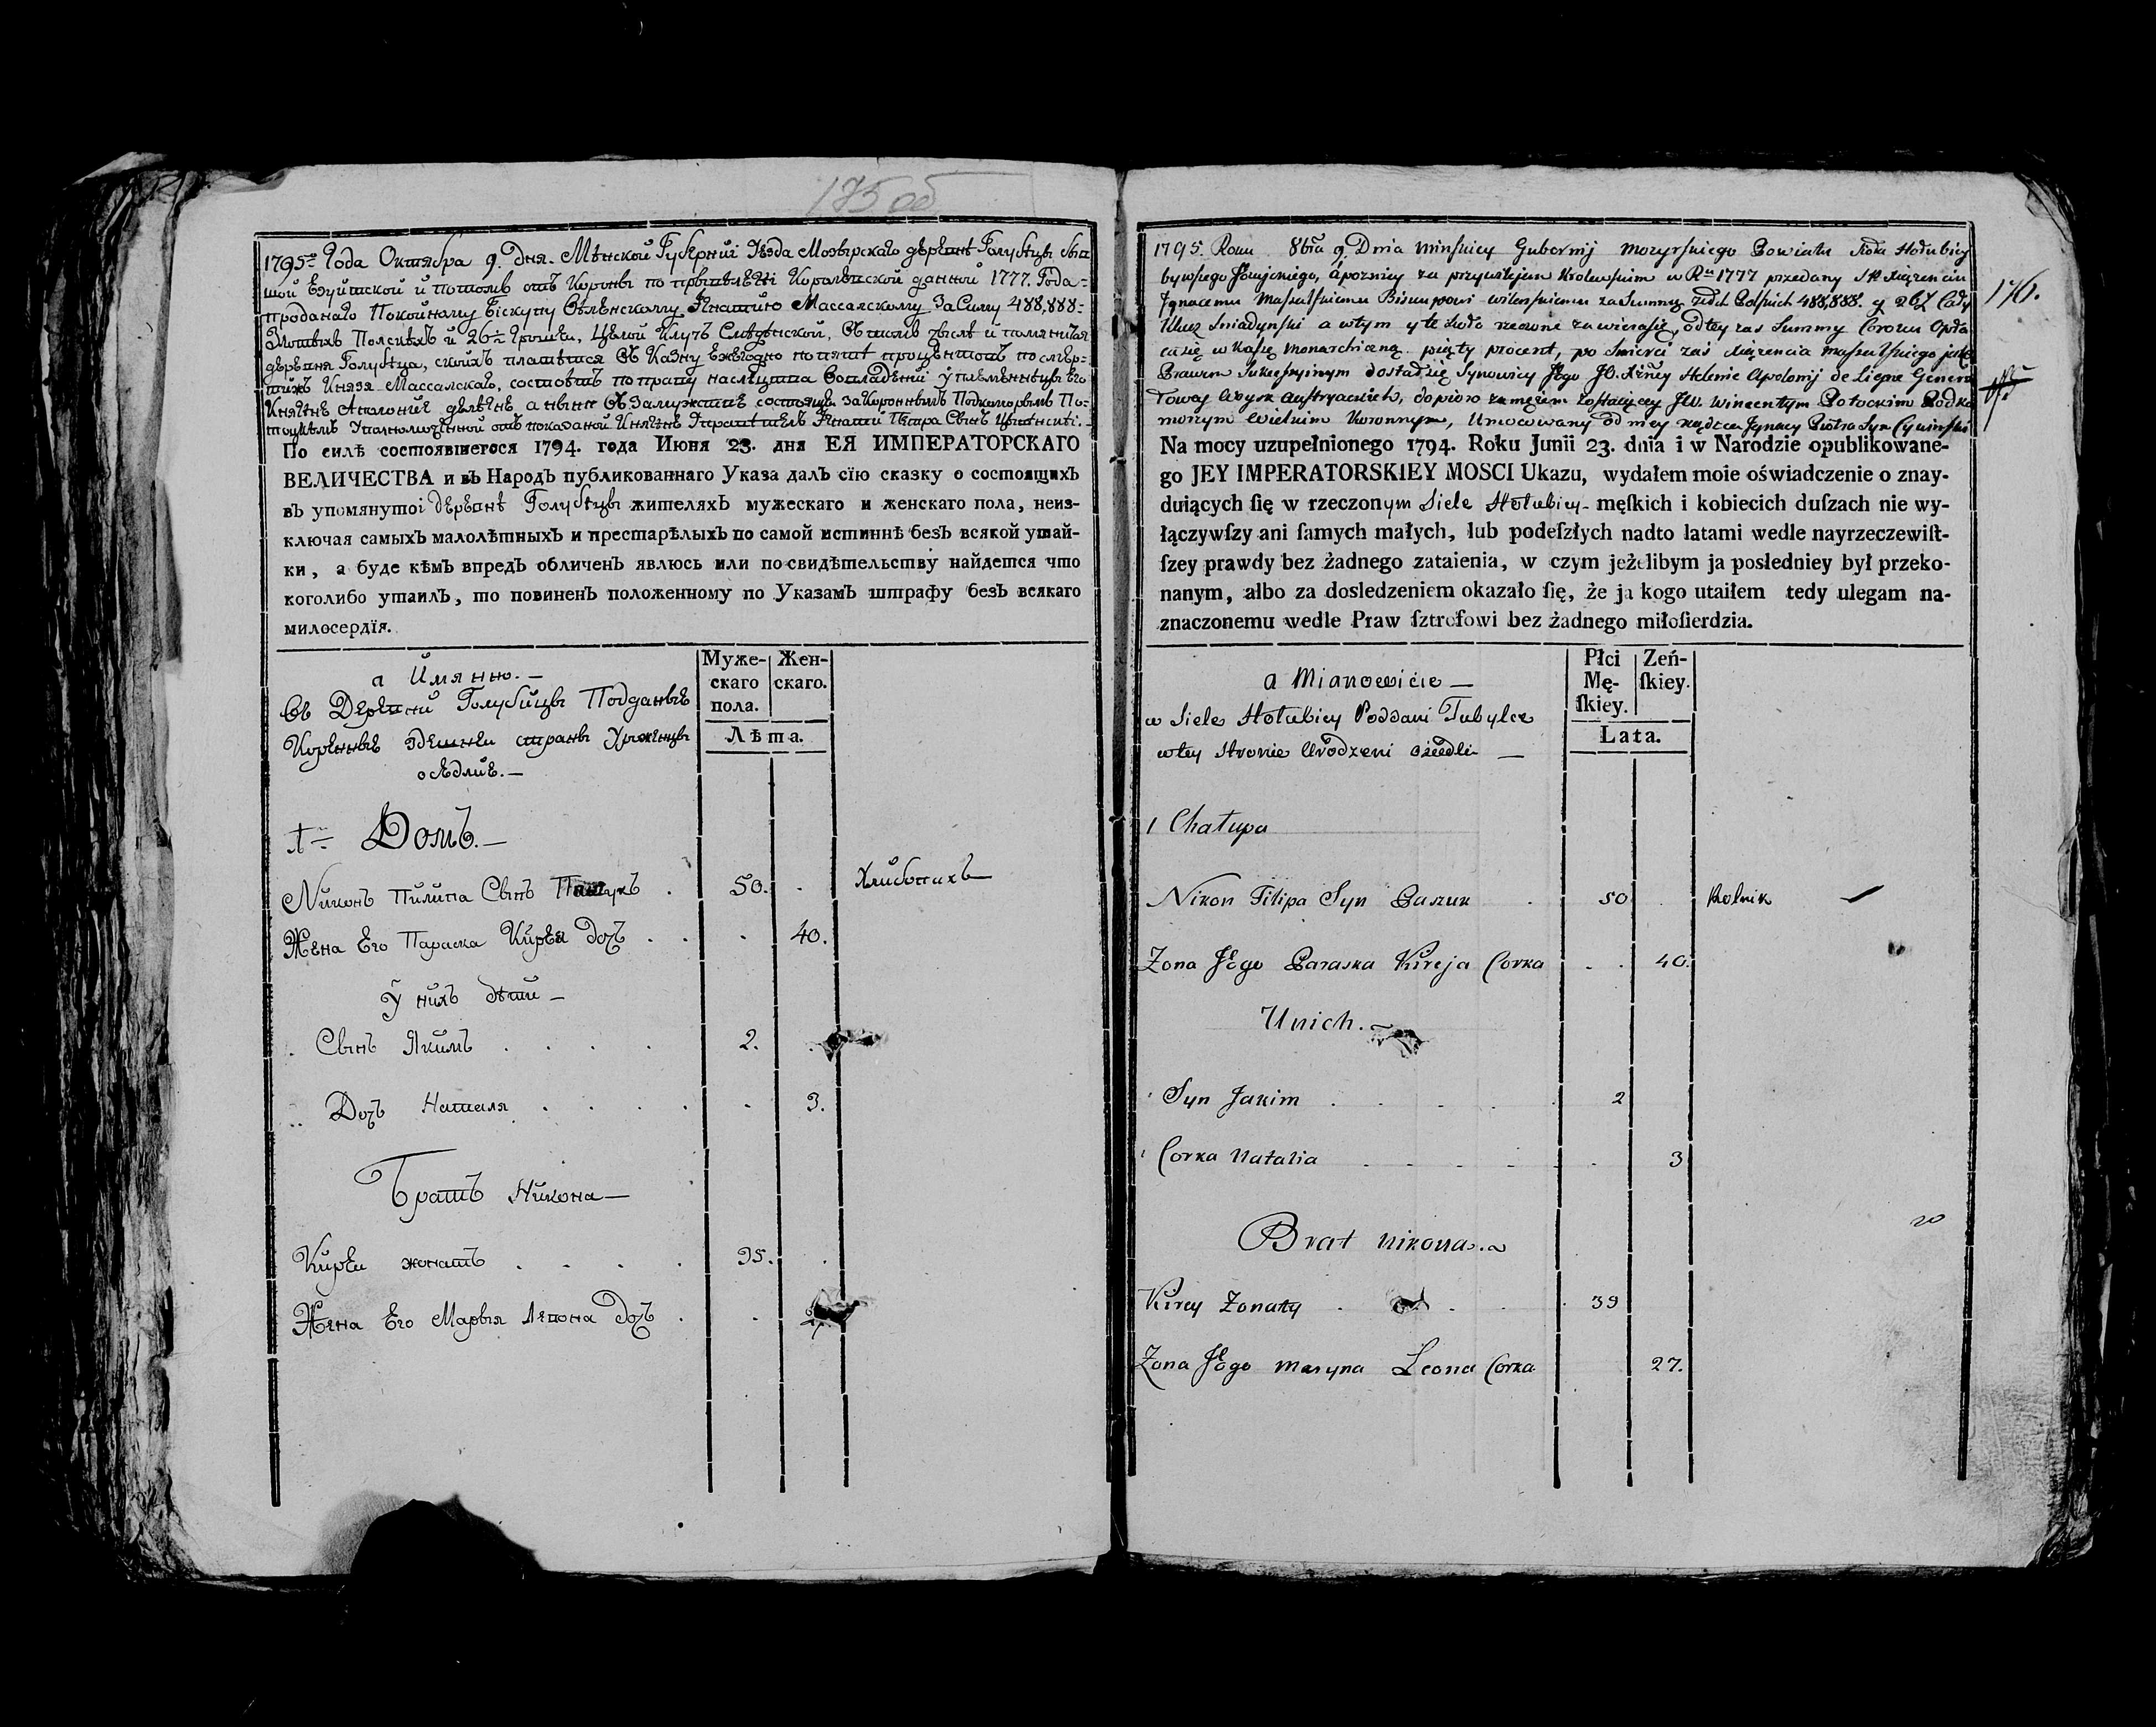 175 об
1795го Года Октября 9. Дня. Мѣнской Губерніи Уезда Мозырскаго деревнѣ Голубицы быв
шой Езуитской и потомъ отъ Короны по привилегіи Королевской данной 1777. Года-
проданаго Покойному Бискупу Виленскому Игнатию Массалскому За Суму 488,888:
Злотыхъ Полскихъ и 26ть Грошеи, Целой Ключъ Снѣдинской, Въ томъ числѣ и помянутая
деревня Голубица, скоихъ платится Въ Казну Ежегодно попять процентовъ посмер-
тижъ Князя Массалскаго, состоитъ по праву наследства Вовладении у племенницы Его
Княгинѣ Аполонии делегнѣ, а нынѣ Въ Замужствѣ состоящи. за Короннымъ Подкоморымъ По-
тоцкимъ Уполномоченной отъ показаной Княгинѣ Игнатий Петра Сынъ
По силѣ состоявшегося 1794. года Июня 23. дня ЕЯ ИМПЕРАТОРСКАГО
ВЕЛИЧЕСТВА и въ Народъ публикованнаго Указа далъ сїю сказку о состоящихъ
въ упомянутоі деревнѣ Голубицы жителяхъ мужескаго и женскаго пола, неиз-
ключая самыхъ малолѣтныхъ и престарѣлыхъ по самой истиннѣ безъ всякой утай-
ки, а буде кѣмъ впредъ обличенъ явлюсь или по свидѣтельству найдется что
коголибо утаилъ, то повиненъ положенному по Указамъ штрафу безъ всякаго
милосердїя.
а Имянно. —
Въ Деревни Голубицы Подданые
Коренные здешнеи страны Уроженцы
оседлие. —
Муже-
скаго
пола.
Жен-
скаго.
Лѣта.
1й Домъ. —
Никонъ Пилипа Сынъ Пашукъ . 50. . Хлибопахъ
Жена Его Параска Кирея дочъ . . . 40.
У нихъ дѣти —
. Сынъ Якимъ . . . . 2. .
.. Дочъ Наталя . . . . . 3.
Братъ Никона —
Киреи жонатъ . . . . 35. .
Жена Его Марыя Лепона дочъ . .
1795 Roku 8bra 9. Dnia Minskiey Gubernij Mozyrskiego Powiatu Sioła Hołubicy
bywszego Jezujckiego, a pozniey za przywilejem Krolewskim w Rku 1777 przedany JO Xiązenciu
Jgnacemu Massalskiemu Biskupowi Wilenskiemu za Summę Złch Polskich 488,888. y 26 Cały
Klucz Sniadynski a wtym y te Sioło rzeczone zawierasię, odtey zas Summy Corocu Opła
casię w Kassę Monarchiczną piąty procent, po Smierci zas Xiązencia Massalskiego jako
Prawem Sukcessyinym dostałosię Synowicy Jego JO. Xzney Helenie Apolonij de Ligne Genera
łowey Woysk Austryackich, dopioro zamęzem zostaiącey JW. Wincentym Potockim Podko
morzym Wielkim Koronnym, Umocowany od niey rządca Jgnacy Piotra Syn
Na mocy uzupełnionego 1794. Roku Junii 23. dnia i w Narodzie opublikowane-
go JEY IMPERATORSKIEY MOSCI Ukazu, wydałem moie oświadczenie o znay-
duiących ſię w rzeczonym Siele Hołubicy męſkich i kobiecich duſzach nie wy-
łączywſzy ani ſamych małych, lub podeſzłych nadto latami wedle nayrzeczewiſt-
ſzey prawdy bez żadnego zataienia, w czym jeżelibym ja posłedniey był przeko-
nanym, albo za dosledzeniem okazało ſię, że ja kogo utaiłem tedy ulegam na-
znaczonemu wedle Praw ſztrofowi bez żadnego miłoſierdzia.
176.
a Mianowicie —
w Siele Hołubicy Poddani Tubylce
wtey Stronie Urodzeni osiedli —
Płci
Mę-
ſkiey.
Zeń-
ſkiey.
Lata.
1 Chałupa
Nikon Filipa Syn Paszuk . 50 . Rolnik
Zona Jego Paraska Kireja Corka . . 40.
Unich. ~
Syn Jakim . . . . 2
Corka Natalia . . . . . . 3
Brat Nikona. ~
Kirey Zonaty . . . . 39
Zona Jego Maryna Leona Corka 27.